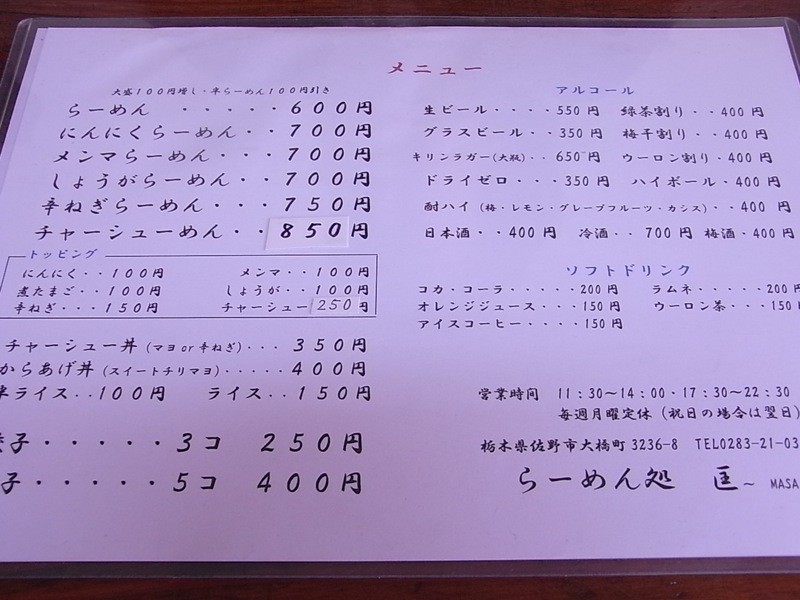 メニュー
大盛100円増し・半らーめん100円引き
らーめん ・・・・・600円
にんにくらーめん・・700円
メンマらーめん・・・700円
しょうがらーめん・・700円
辛ねぎらーめん・・・750円
チャーシューめん・・850円
トッピング
にんにく・・100円 メンマ・・100円
煮たまご・・100円 しょうが・・100円
辛ねぎ・・・150円 チャーシュー250円
チャーシュー丼(マヨor辛ねぎ)・・・350円
からあげ丼(スイートチリマヨ)・・・・・400円
半ライス・・100円 ライス・・150円
餃子・・・・・3コ 250円
子・・・・・5コ 400円
アルコール
生ビール・・・・550円 緑茶割り・・400円
グラスビール・・350円 梅干割り・・400円
キリンラガー(大瓶)・・650円 ウーロン割り・400円
ドライゼロ・・・350円 ハイボール・400円
酎ハイ(梅・レモン・グレープフルーツ・カシス)・・400円
日本酒・・400円 冷酒・・700円 梅酒・400円
ソフトドリンク
コカ・コーラ・・・・・200円 ラムネ・・・・・200円
オレンジジュース・・・150円 ウーロン茶・・・150円
アイスコーヒー・・・・150円
営業時間 11:30～14:00・17:30～22:30
毎週月曜定休(祝日の場合は翌日)
栃木県佐野市大橋町3236-8 TEL0283-21-03
らーめん処 匡～ MASA